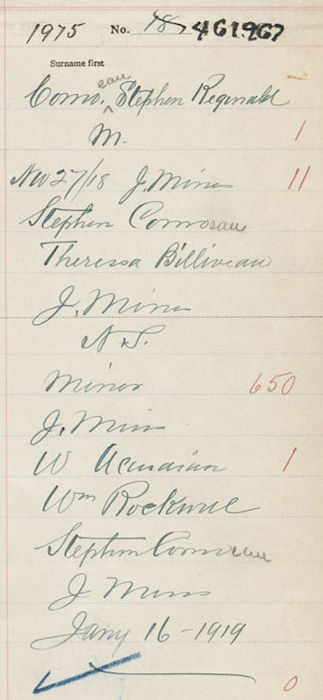 1975 No. 18 461967
Surname first
eau
Como. Stephen Reginald
M. 1
Nov 27/18 J. Mines 11
Stephen Comoeau
Theressa Billiveau
J. Mines
N.S.
Miner 650
J. Mines
W Acadian 1
Wm Rockwell
Stephen Comoeau
J Mines
Jany 16-1919
0